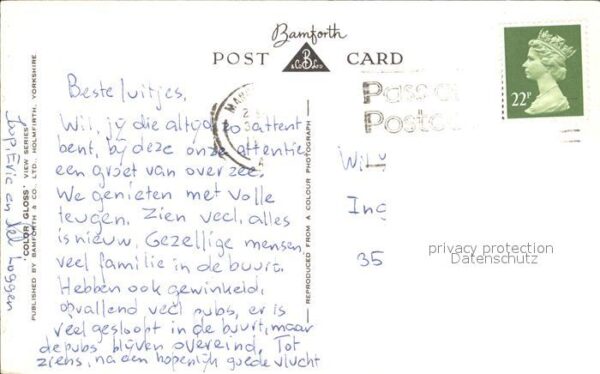 Bamforth
POST CARD
& Co Ltd
Beste luitjes,
Wil, jij die altijd zo attent
bent, bij deze onze attentie,
een groet van over zee.
We genieten met volle
teugen. Zien veel, alles
is nieuw. Gezellige mensen,
veel familie in de buurt.
Hebben ook gewinkeld,
opvallend veel pubs, er is
veel gesloopt in de buurt, maar
de pubs blijven overeind. Tot
ziens, na den hopenlijk goede vlucht
Joop, Eric en Nel Loggen
"COLOR GLOSS" VIEW SERIES
PUBLISHED BY BAMFORTH & CO. LTD., HOLMFIRTH, YORKSHIRE
REPRODUCED FROM A COLOUR PHOTOGRAPH
MAN
Pass a
Postc
22P
Wil
Ing
35
privacy protection
Datenschutz